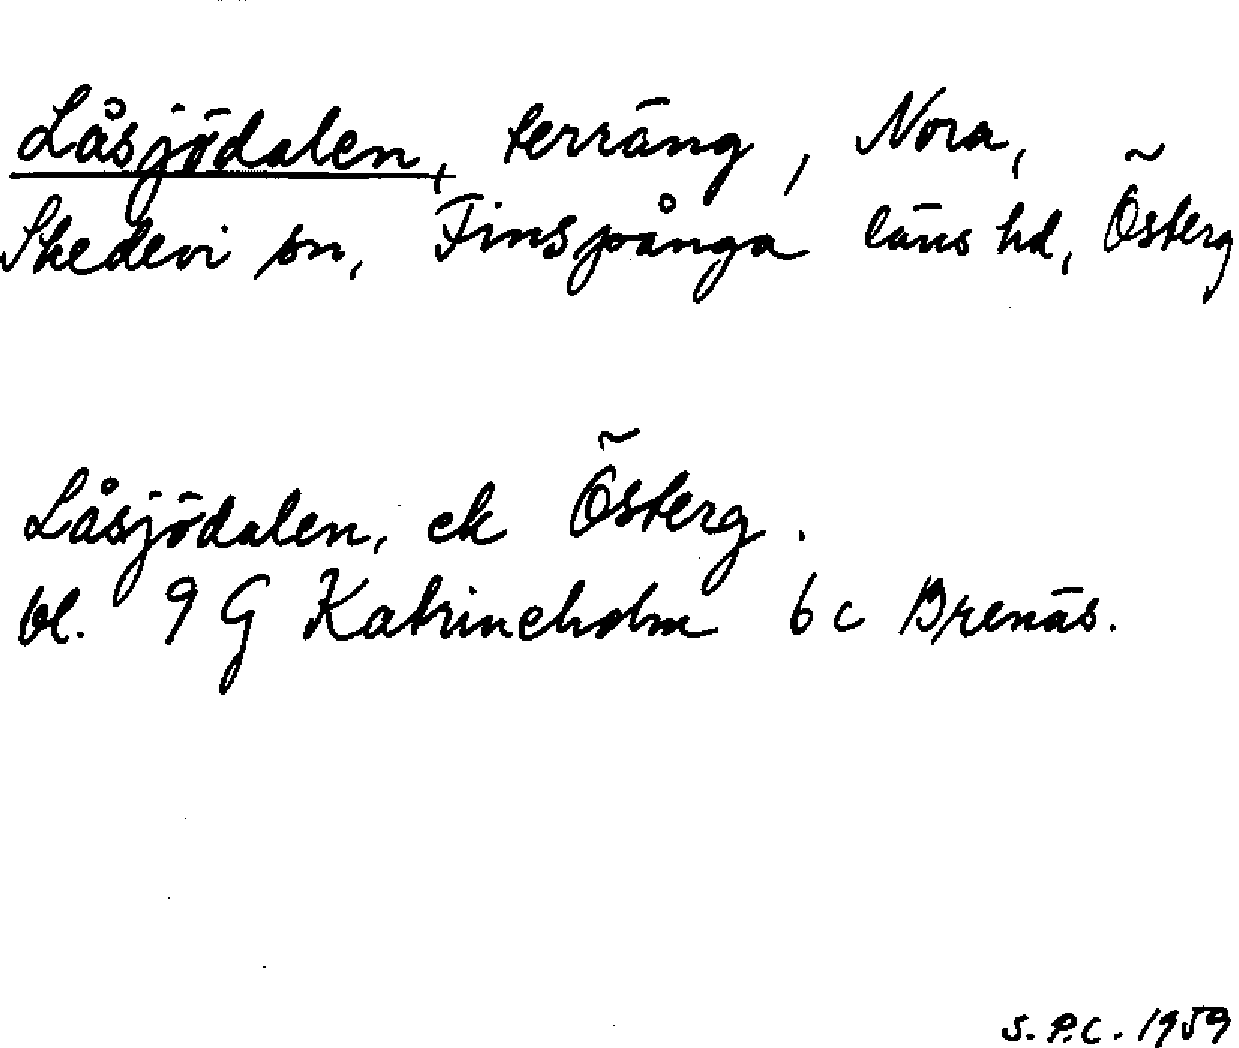 Låsjödalen, terräng, Nora,
Skedevi sn, Finspånga läns hd, Österg
Låsjödalen, ek Österg.
bl. 9 G Katrineholm 6 c Brenäs.
S.P.C. 1959